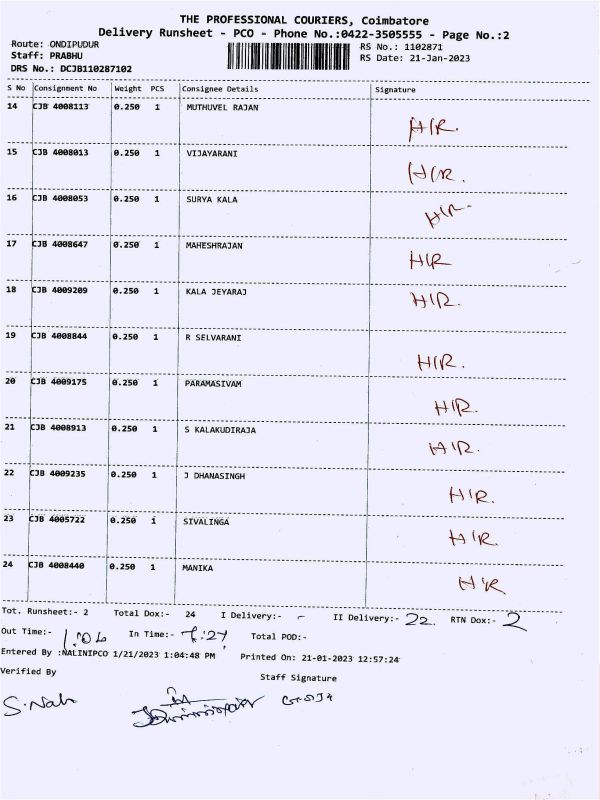 THE PROFESSIONAL COURIERS, Coimbatore
Delivery Runsheet - PCO - Phone No.:0422-3505555 - Page No.:2
Route: ONDIPUDUR RS No.: 1102871
Staff: PRABHU RS Date: 21-Jan-2023
DRS No.: DCJB110287102
S No Consignment No Weight PCS Consignee Details Signature
14 CJB 4008113 0.250 1 MUTHUVEL RAJAN H/R.
15 CJB 4008013 0.250 1 VIJAYARANI H/R.
16 CJB 4008053 0.250 1 SURYA KALA H/R.
17 CJB 4008647 0.250 1 MAHESHRAJAN H/R
18 CJB 4009209 0.250 1 KALA JEYARAJ H/R.
19 CJB 4008844 0.250 1 R SELVARANI H/R.
20 CJB 4009175 0.250 1 PARAMASIVAM H/R.
21 CJB 4008913 0.250 1 S KALAKUDIRAJA H/R.
22 CJB 4009235 0.250 1 J DHANASINGH H/R.
23 CJB 4005722 0.250 1 SIVALINGA H/R.
24 CJB 4008440 0.250 1 MANIKA H/R
Tot. Runsheet:- 2 Total Dox:- 24 I Delivery:- - II Delivery:- 22. RTN Dox:- 2
Out Time:- 1:06 In Time:- 7:27 Total POD:-
Entered By :NALINIPCO 1/21/2023 1:04:48 PM Printed On: 21-01-2023 12:57:24
Verified By Staff Signature